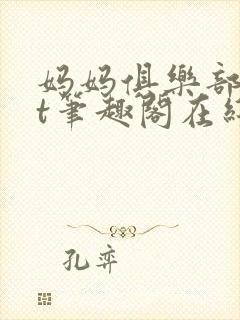 妈妈俱樂部
t筆趣閣在
孔弈